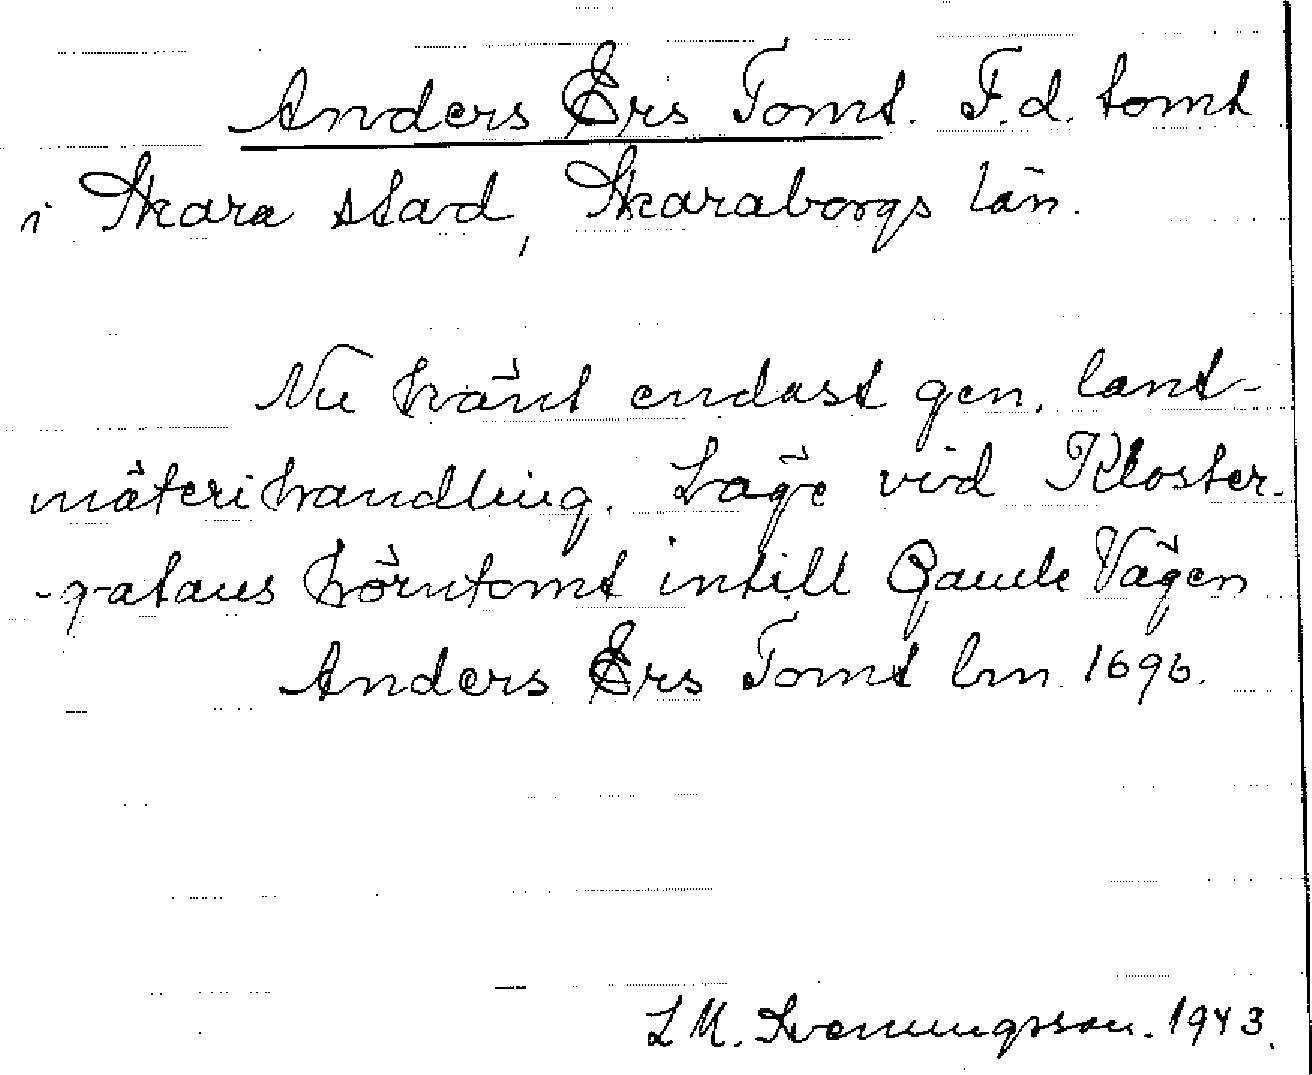 Anders Ers Tomt. F.d. tomt
i Skara stad, Skaraborgs län.
Nu känt endast gen. lant-
mäterihandling. Läge vid Kloster-
-gatans hörntomt intill Gamle Vägen
Anders Ers Tomt lm 1696.
L M. Svenungsson. 1943.